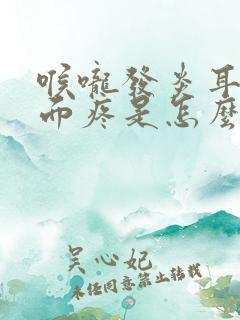 喉嚨發炎耳
而疼是怎麼
吴心妃
未经同意禁止转载